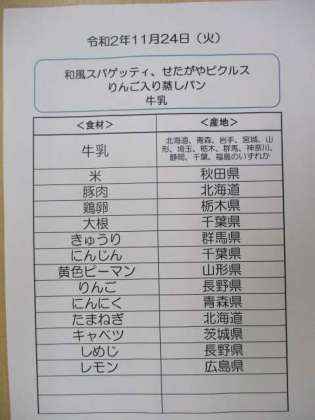 令和2年11月24日（火）
和風スパゲッティ、せたがやピクルス
りんご入り蒸しパン
牛乳
＜食材＞ ＜産地＞
牛乳 北海道、青森、岩手、宮城、山
形、埼玉、栃木、群馬、神奈川、
静岡、千葉、福島のいずれか
米 秋田県
豚肉 北海道
鶏卵 栃木県
大根 千葉県
きゅうり 群馬県
にんじん 千葉県
黄色ピーマン 山形県
りんご 長野県
にんにく 青森県
たまねぎ 北海道
キャベツ 茨城県
しめじ 長野県
レモン 広島県